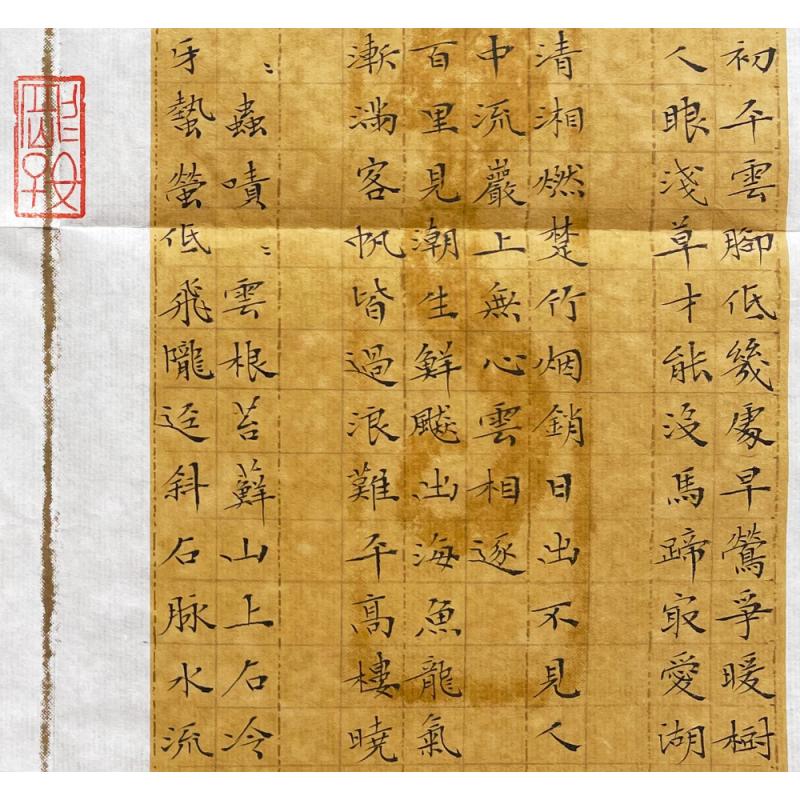 初平雲腳低幾處早鶯爭暖樹
人眼淺草才能沒馬蹄㝡愛湖
清湘燃楚竹烟銷日出不見人
中流巖上無心雲相逐
百里見潮生鮮飇出海魚龍氣
漸滿客帆皆過浪難平高樓曉
〻蟲嘖〻雲根苔蘚山上石冷
牙蟄螢低飛隴逕斜石脉水流